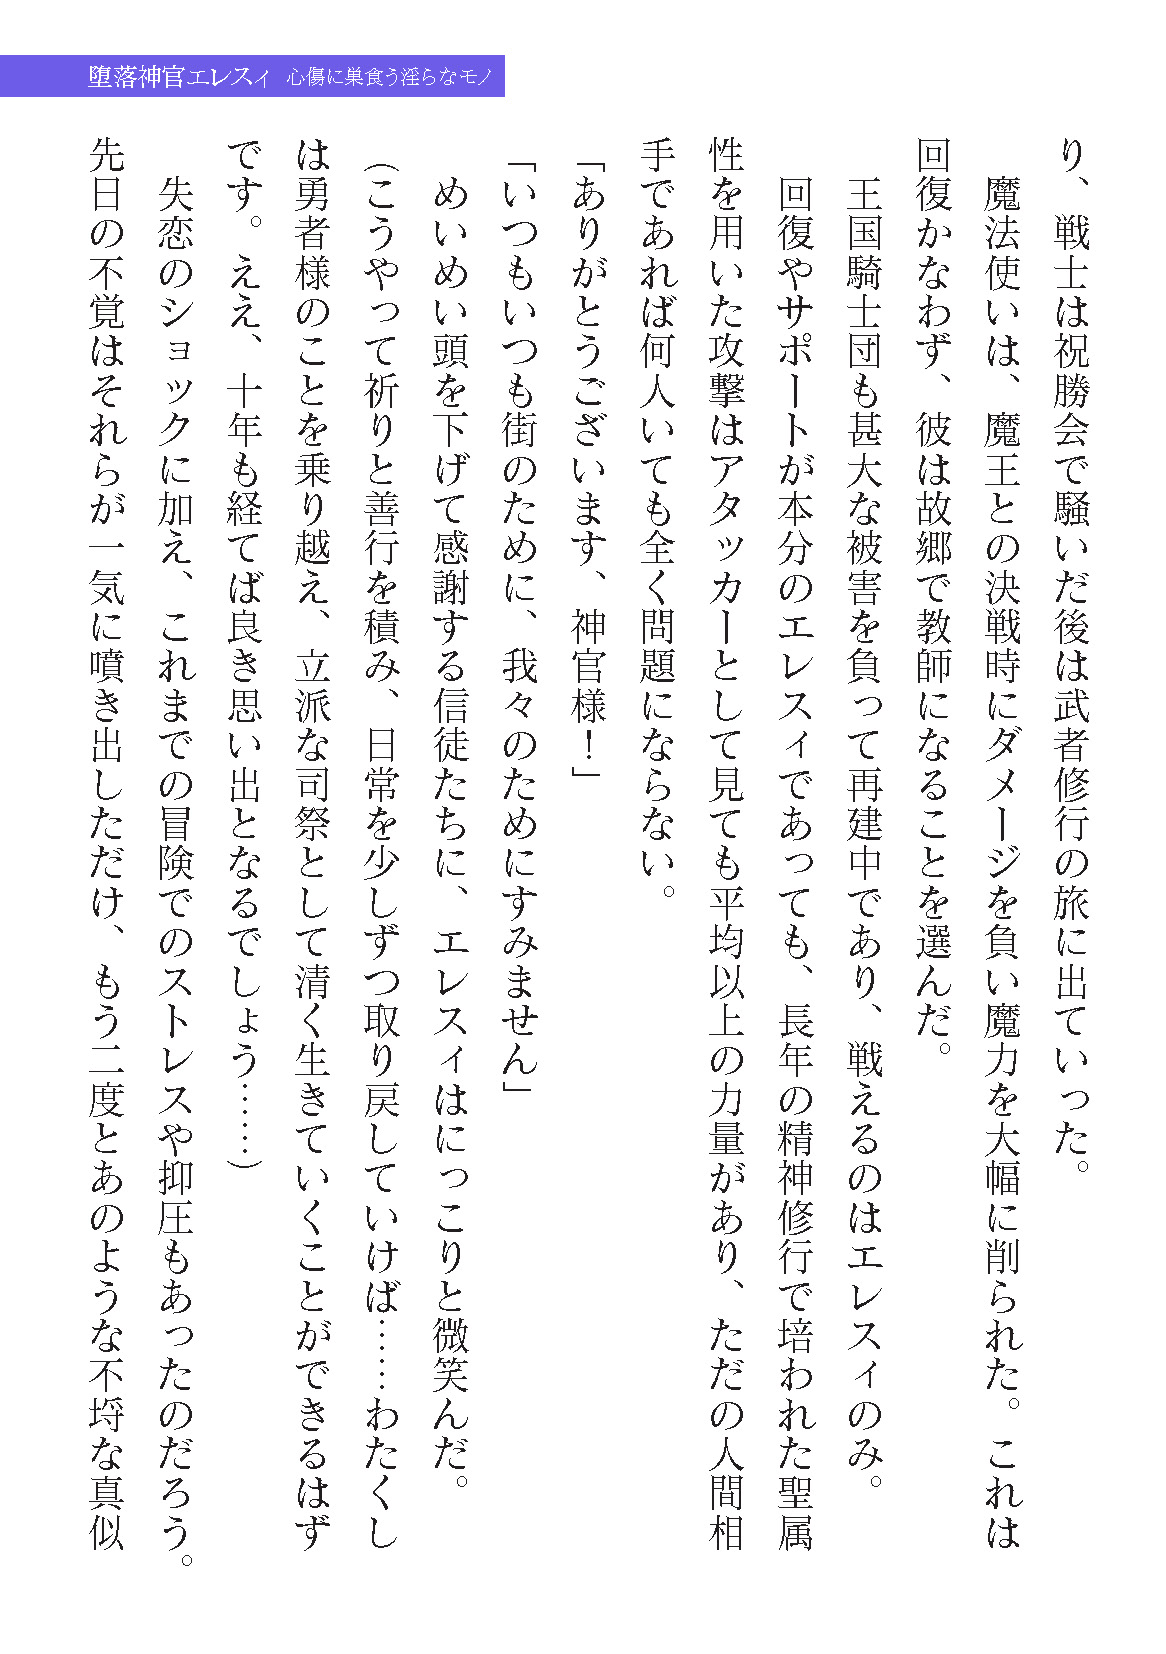 堕落神官エレスィ 心傷に巣食う淫らなモノ
り、戦士は祝勝会で騒いだ後は武者修行の旅に出ていった。
魔法使いは、魔王との決戦時にダメージを負い魔力を大幅に削られた。これは
回復かなわず、彼は故郷で教師になることを選んだ。
王国騎士団も甚大な被害を負って再建中であり、戦えるのはエレスィのみ。
回復やサポートが本分のエレスィであっても、長年の精神修行で培われた聖属
性を用いた攻撃はアタッカーとして見ても平均以上の力量があり、ただの人間相
手であれば何人いても全く問題にならない。
「ありがとうございます、神官様！」
「いつもいつも街のために、我々のためにすみません」
めいめい頭を下げて感謝する信徒たちに、エレスィはにっこりと微笑んだ。
（こうやって祈りと善行を積み、日常を少しずつ取り戻していけば……わたくし
は勇者様のことを乗り越え、立派な司祭として清く生きていくことができるはず
です。ええ、十年も経てば良き思い出となるでしょう……）
失恋のショックに加え、これまでの冒険でのストレスや抑圧もあったのだろう。
先日の不覚はそれらが一気に噴き出しただけ、もう二度とあのような不埒な真似